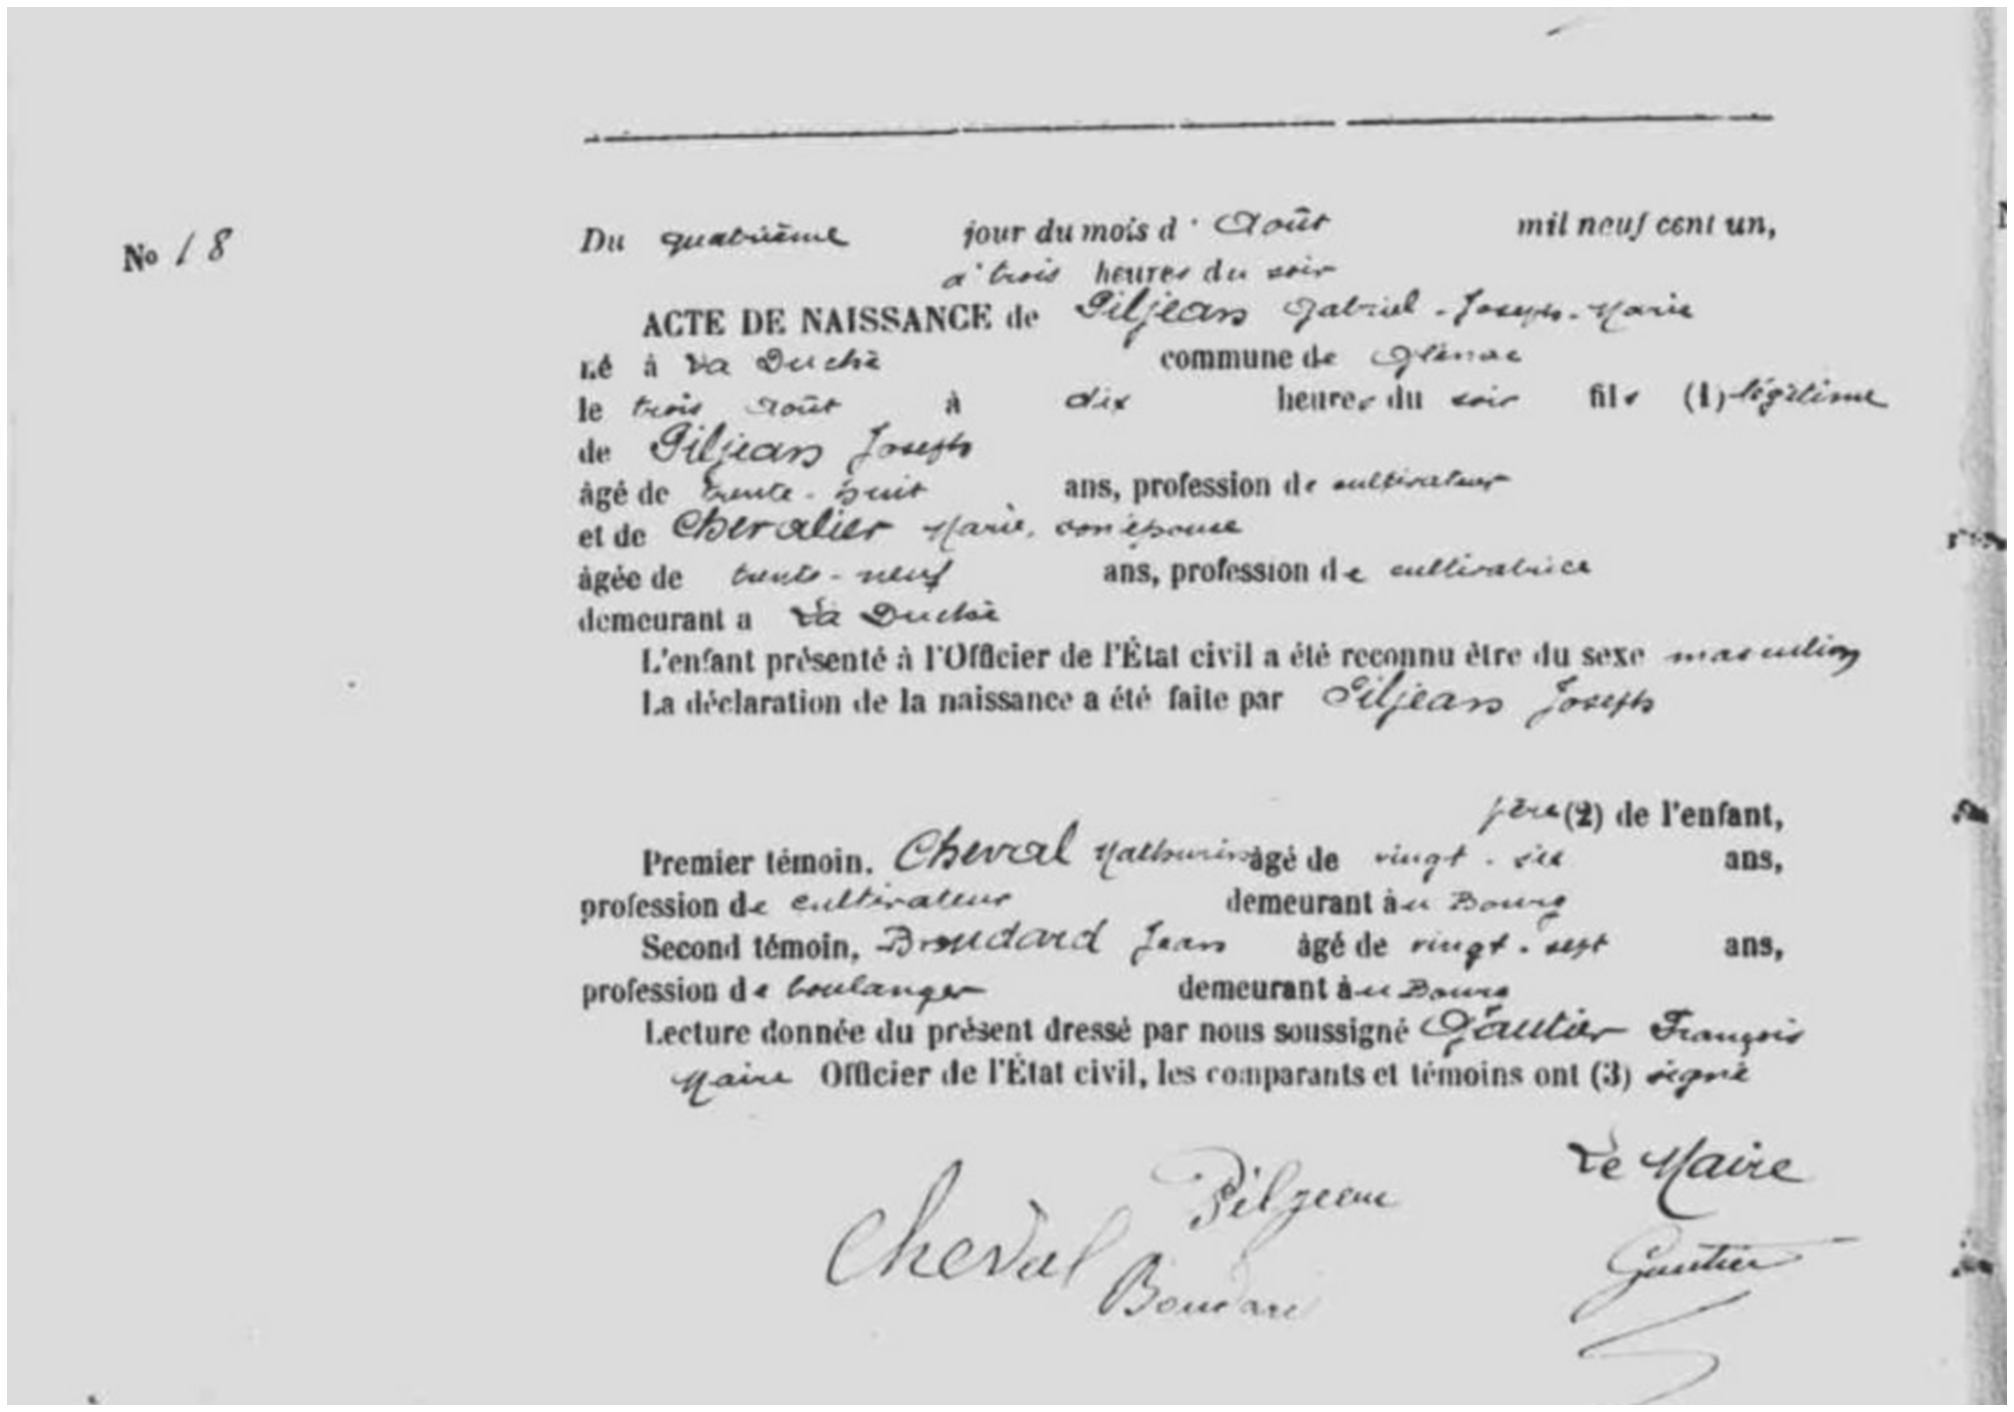 No 18
Du quatrième jour du mois d' Août mil neuf cent un,
à trois heures du soir
ACTE DE NAISSANCE de Piljean Gabriel-Joseph-Marie
né à La Duché commune de Glénac
le trois Août à dix heures du soir fils (1) légitime
de Piljean Joseph
âgé de trente-huit ans, profession de cultivateur
et de Chevalier Marie, son épouse
âgée de trente-neuf ans, profession de cultivatrice
demeurant a La Duché
L'enfant présenté à l'Officier de l'État civil a été reconnu être du sexe masculin
La déclaration de la naissance a été faite par Piljean Joseph
père (2) de l'enfant,
Premier témoin, Cheval Mathurin âgé de vingt-six ans,
profession de cultivateur demeurant àu Bourg
Second témoin, Jean âgé de vingt-sept ans,
profession de boulanger demeurant àu Bourg
Lecture donnée du présent dressé par nous soussigné Gautier François
Maire Officier de l'État civil, les comparants et témoins ont (3) signé
Le Maire
Piljean
Cheval
Gautier